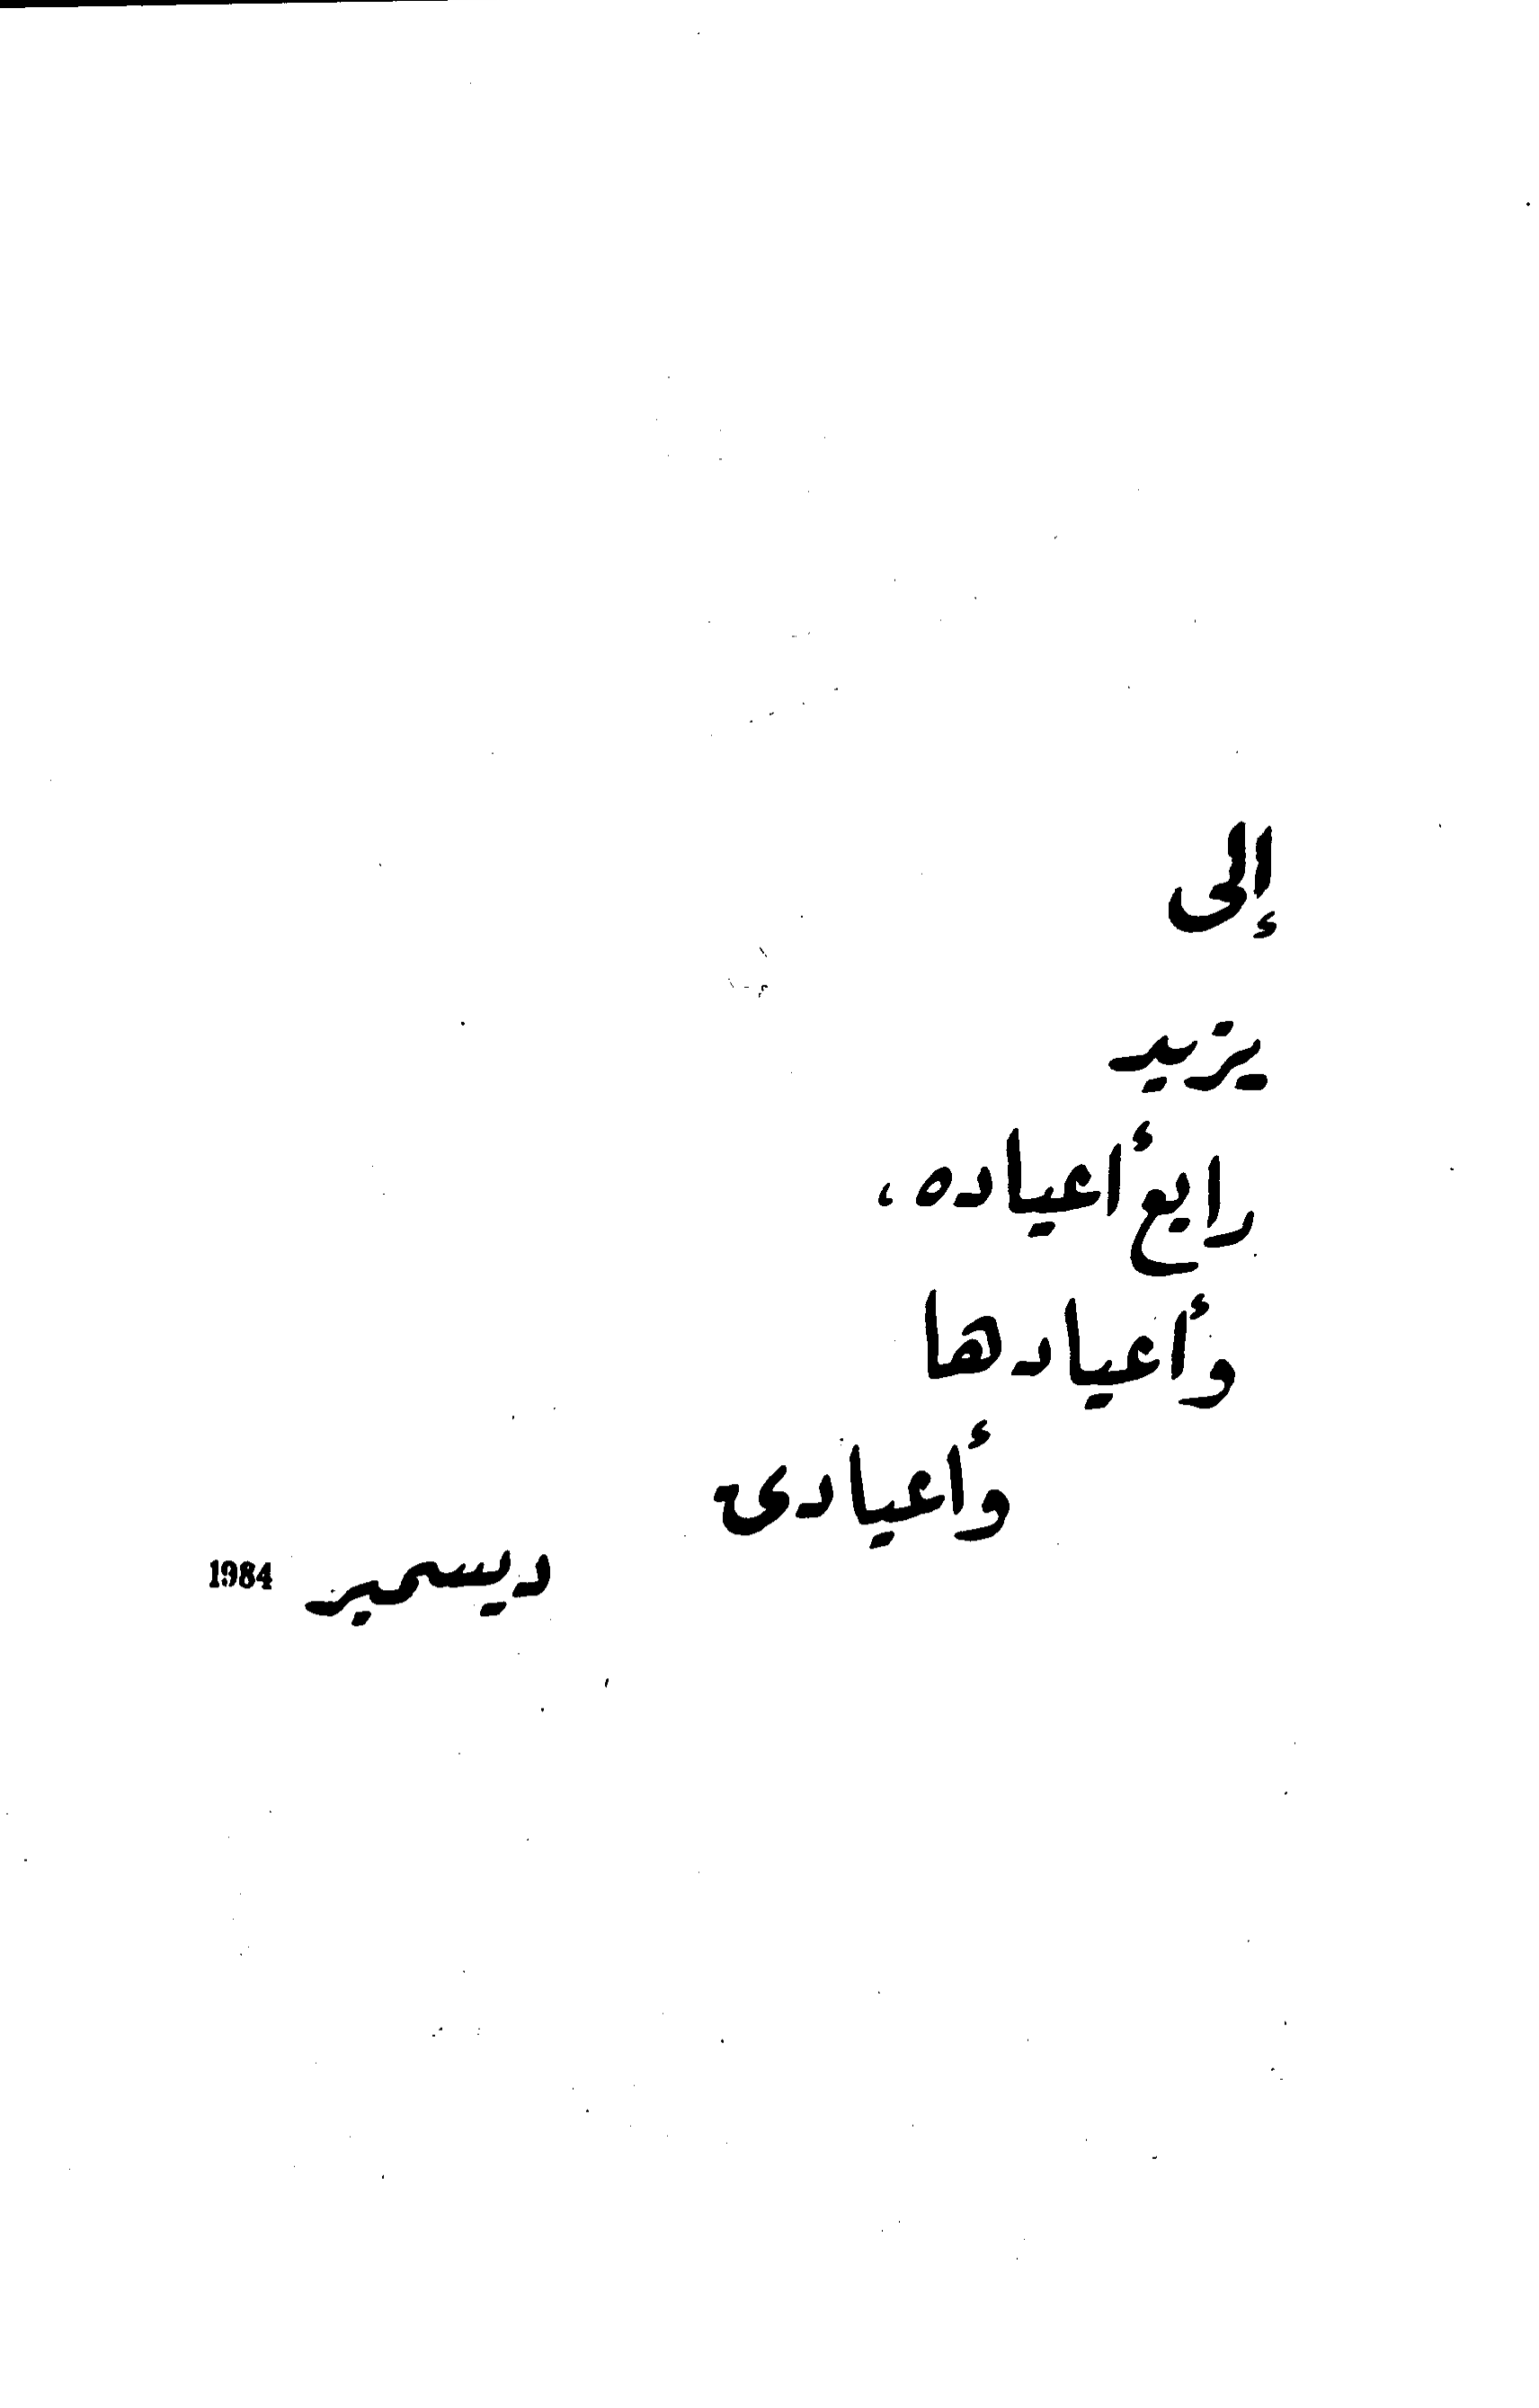 إلى
يزيد
رابع أعياده،
وأعيادها
وأعيادي
ديسمبر 1984